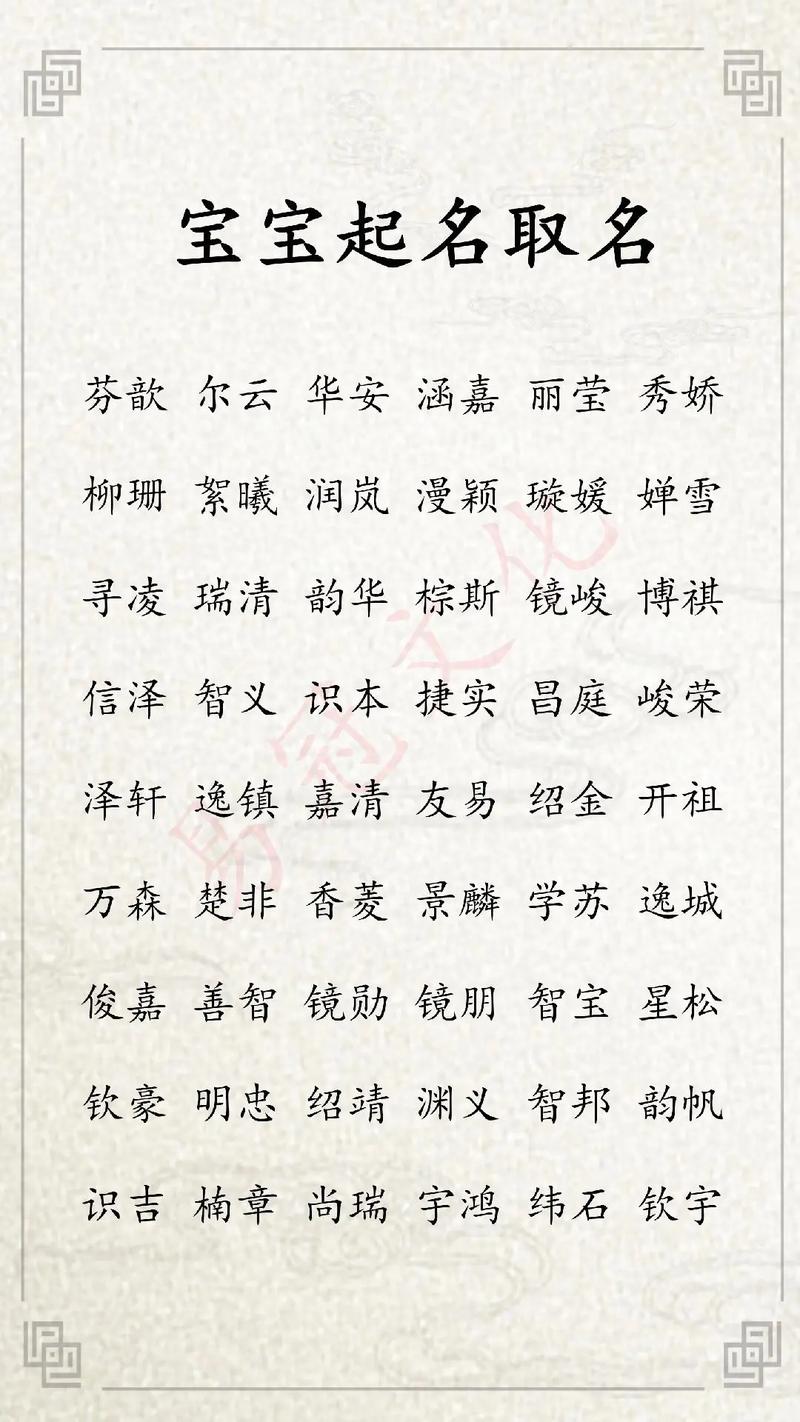 宝宝起名取名
芬歆 尔云 华安 涵嘉 丽莹 秀娇
柳珊 絮曦 润岚 漫颖 璇媛 婵雪
寻凌 瑞清 韵华 棕斯 镜峻 博祺
信泽 智义 识本 捷实 昌庭 峻荣
泽轩 逸镇 嘉清 友易 绍金 开祖
万森 楚非 香菱 景麟 学苏 逸城
俊嘉 善智 镜勋 镜朋 智宝 星松
钦豪 明忠 绍靖 渊义 智邦 韵帆
识吉 楠章 尚瑞 宇鸿 纬石 钦宇
易冠文化